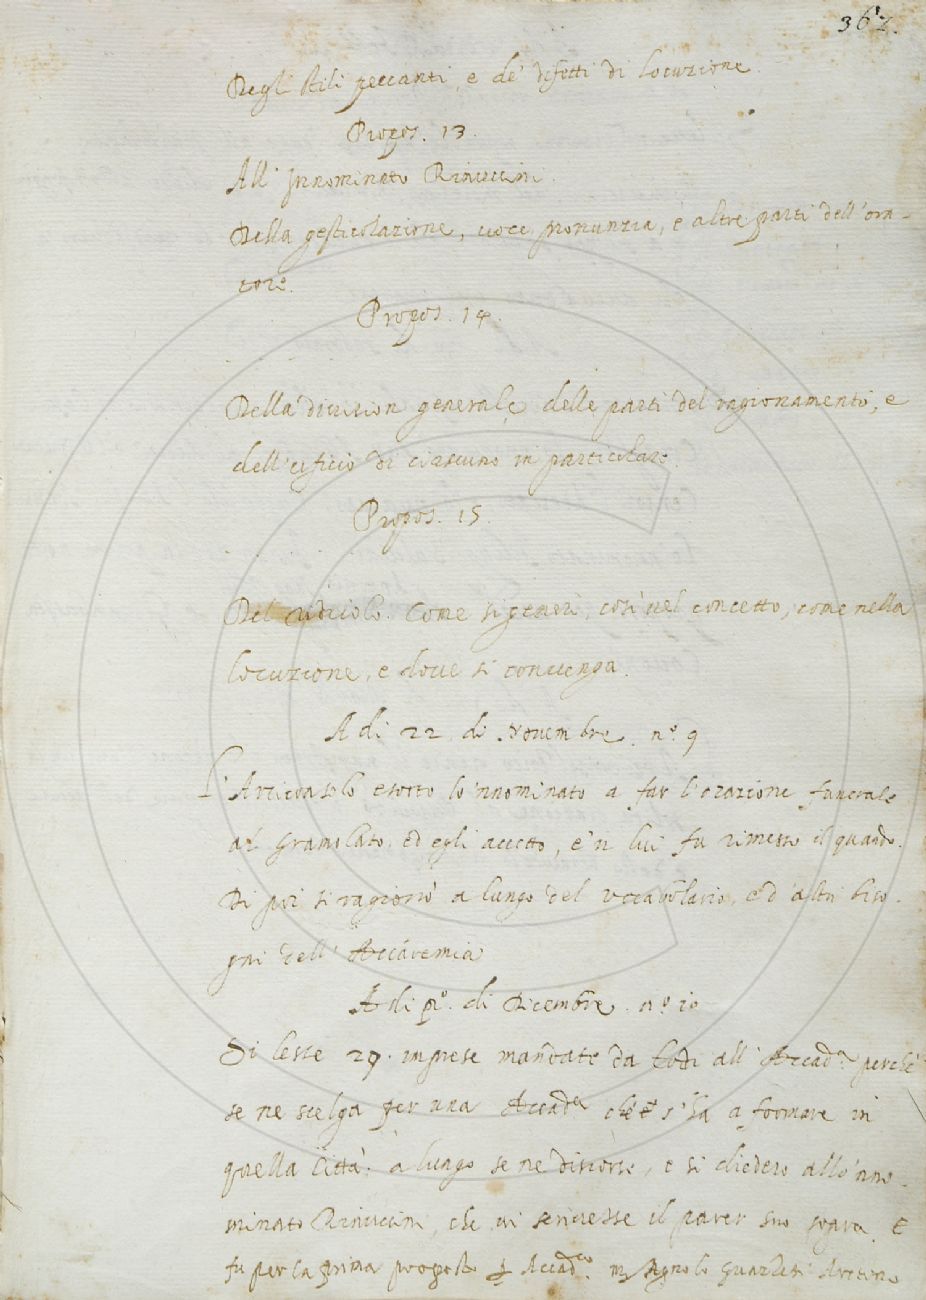 367.
Degl' stili peccanti, e de' difetti di locuzione.
Propos. 13.
All' Innominato Rinuccini.
Della gesticolazione, voce, pronunzia, e altre parti dell'ora-
tore.
Propos. 14.
Della division generale delle parti del ragionamento, e
dell'uficio di ciascuno in particolare.
Propos. 15.
Del ridiculo. Come si generi, così nel concetto, come nella
locuzione, e dove si convenga.
A di 22 di Novembre. n.º 9
L'Arciconsolo esortò lo'nnominato a far l'orazione funerale
al Gramolato, ed egli accettò, e'n lui fu rimesso il quando.
Di poi si ragionò a lungo del vocabolario, e d'altri biso-
gni dell'Accademia
A di p.º di Dicembre n.º 10
Si lesse 29. imprese mandate da Todi all' Accad.ª perchè
se ne scelga per una Accad.ª che s'ha a formare in
quella Città. a lungo se ne discorse, e si diedero allo'nno-
minato Rinuccini, che vi scrivesse il parer suo sopra. E
fu per la prima proposto p Accad.co m Agnolo Guazzesi Aretino